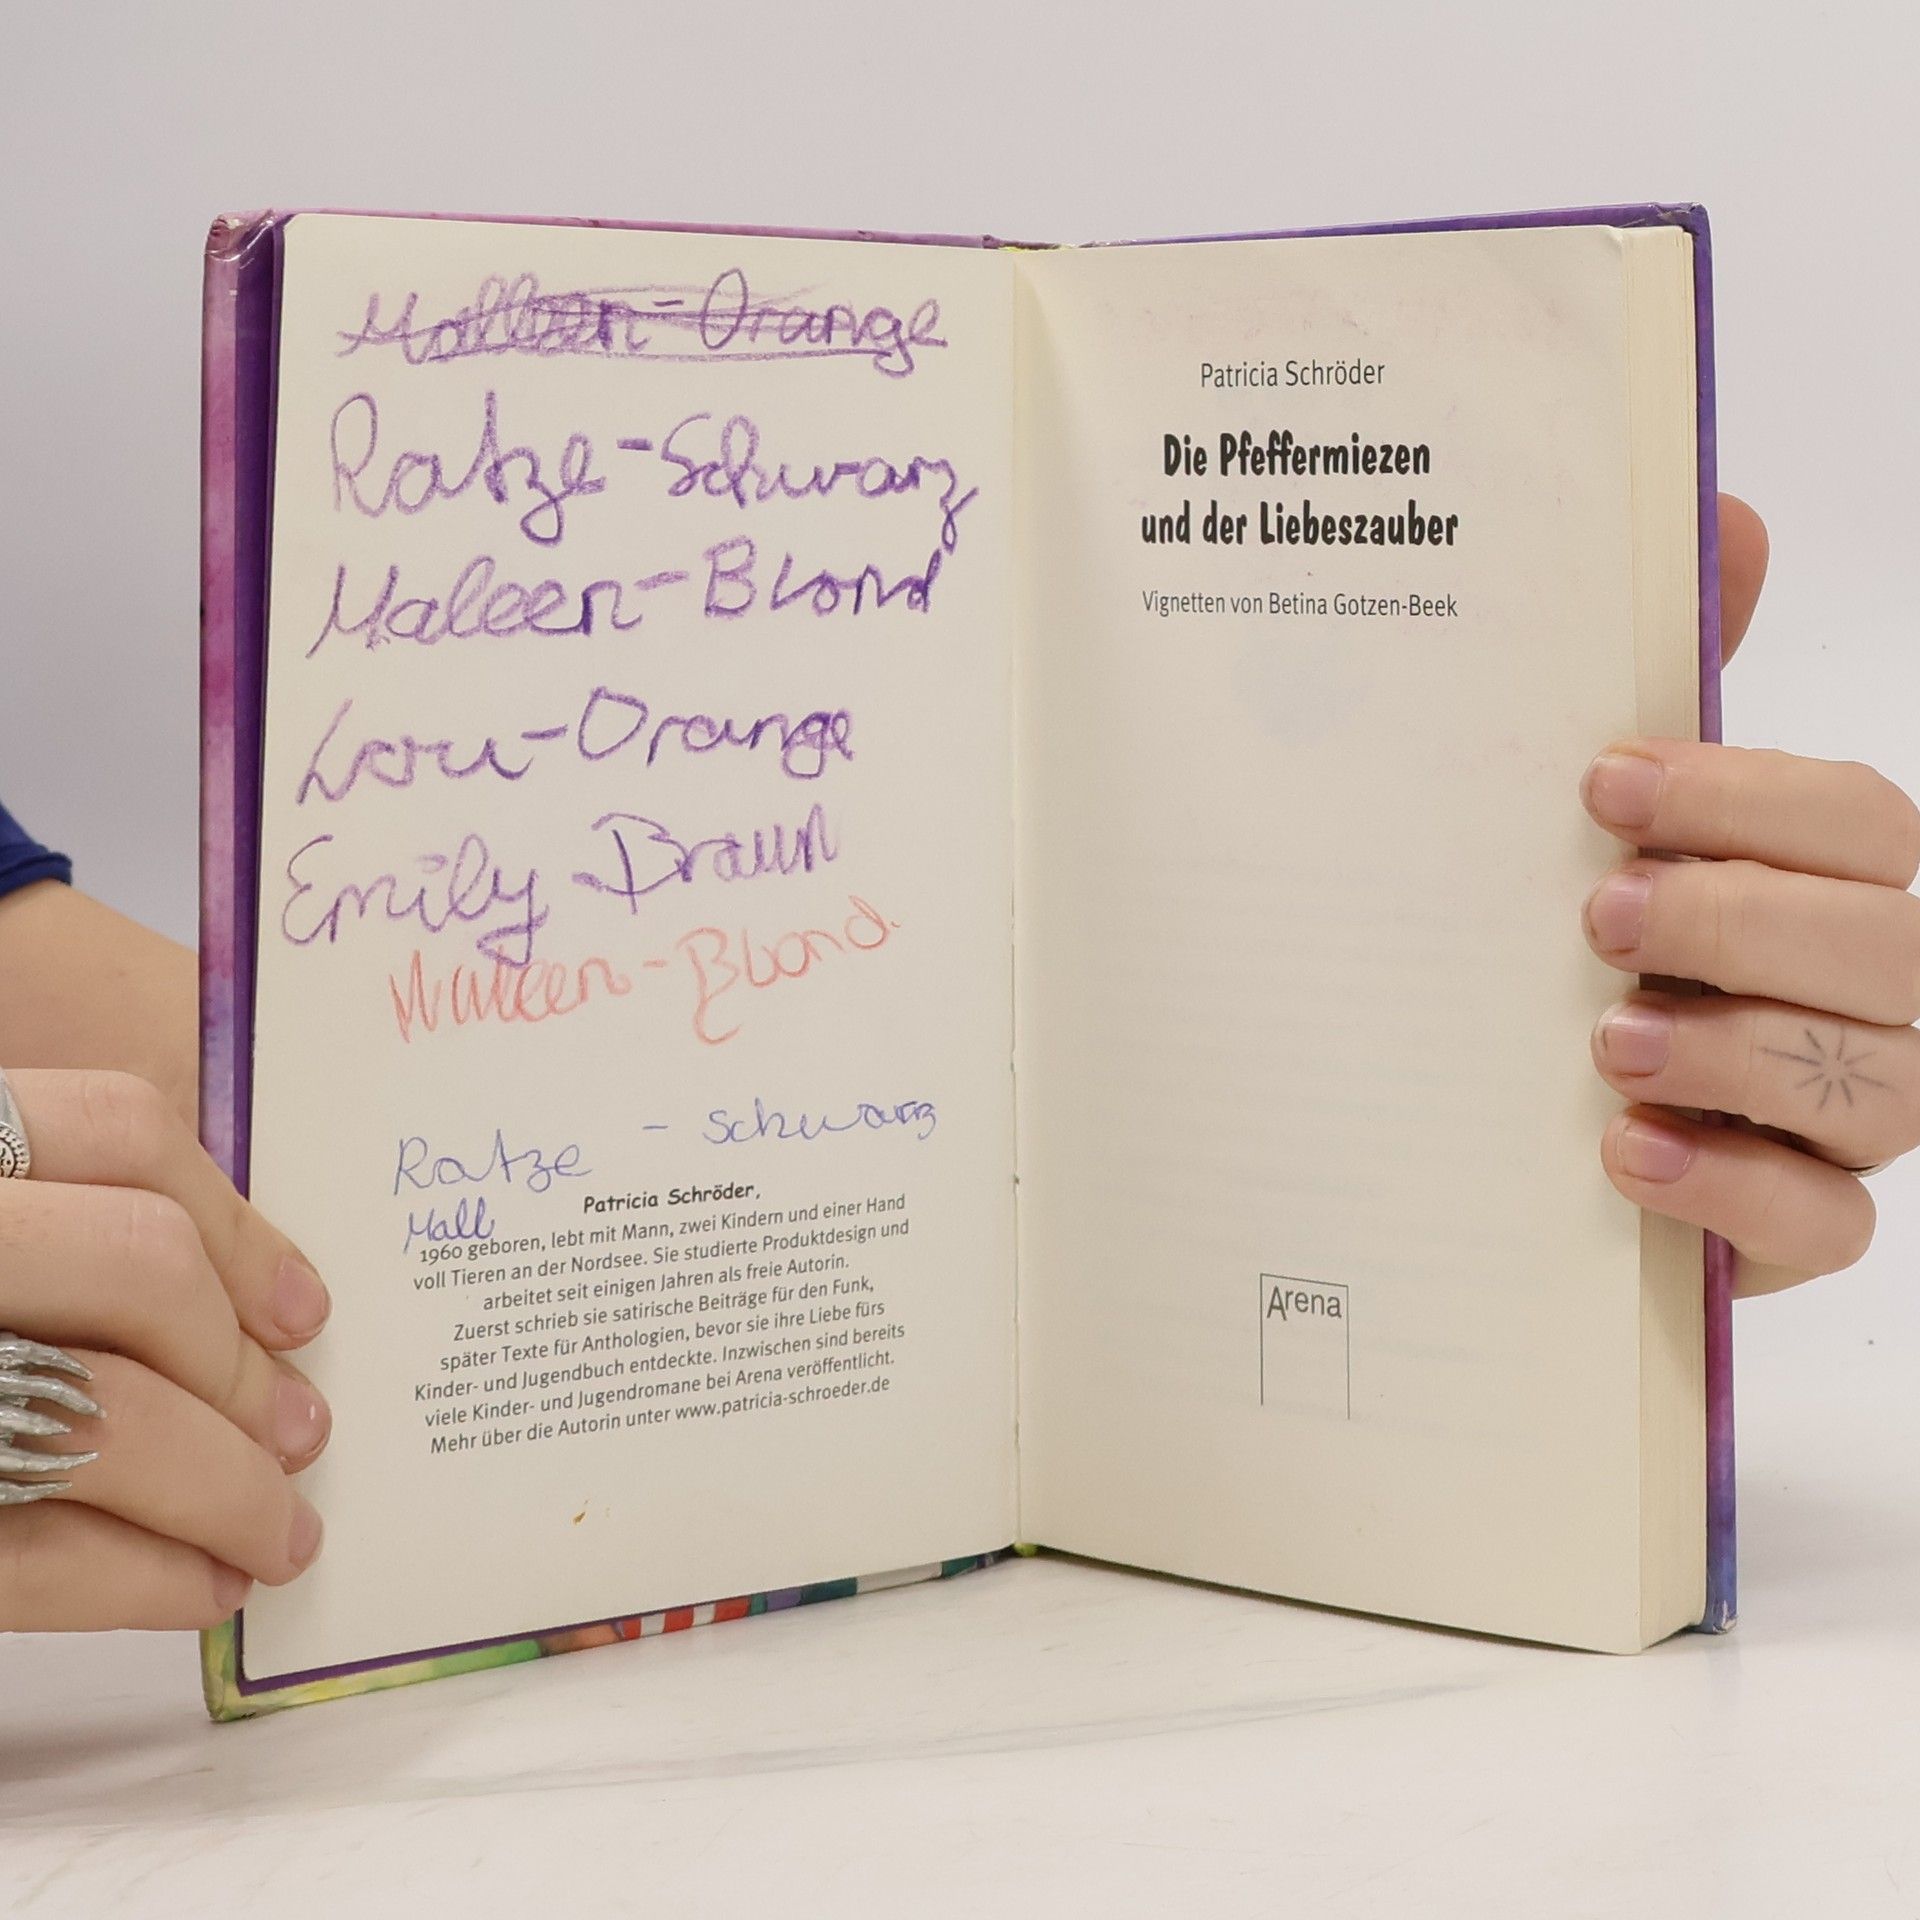 Malleen-Orange
Ratze-Schwarz
Maleen-Blond
Lou-Orange
Emily-Braun
Maleen-Blond.
Ratze - schwarz
Mall
Patricia Schröder,
1960 geboren, lebt mit Mann, zwei Kindern und einer Hand
voll Tieren an der Nordsee. Sie studierte Produktdesign und
arbeitet seit einigen Jahren als freie Autorin.
Zuerst schrieb sie satirische Beiträge für den Funk,
später Texte für Anthologien, bevor sie ihre Liebe fürs
Kinder- und Jugendbuch entdeckte. Inzwischen sind bereits
viele Kinder- und Jugendromane bei Arena veröffentlicht.
Mehr über die Autorin unter www.patricia-schroeder.de
Patricia Schröder
Die Pfeffermiezen
und der Liebeszauber
Vignetten von Betina Gotzen-Beek
Arena